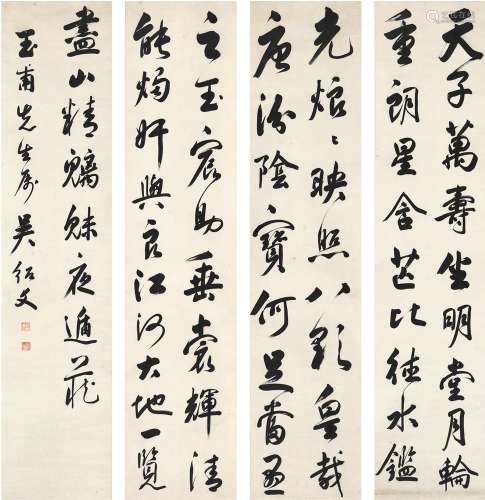 天子萬壽坐明堂月輪
重朗星含芒比德水鑑
光焰〻映照八彩皇哉
唐汾陰寶何足當吾
之玉宸助垂裳輝清
能燭奸與良江河大地一覽
盡山精魑魅夜遁藏
玉甫先生屬 吳紹文